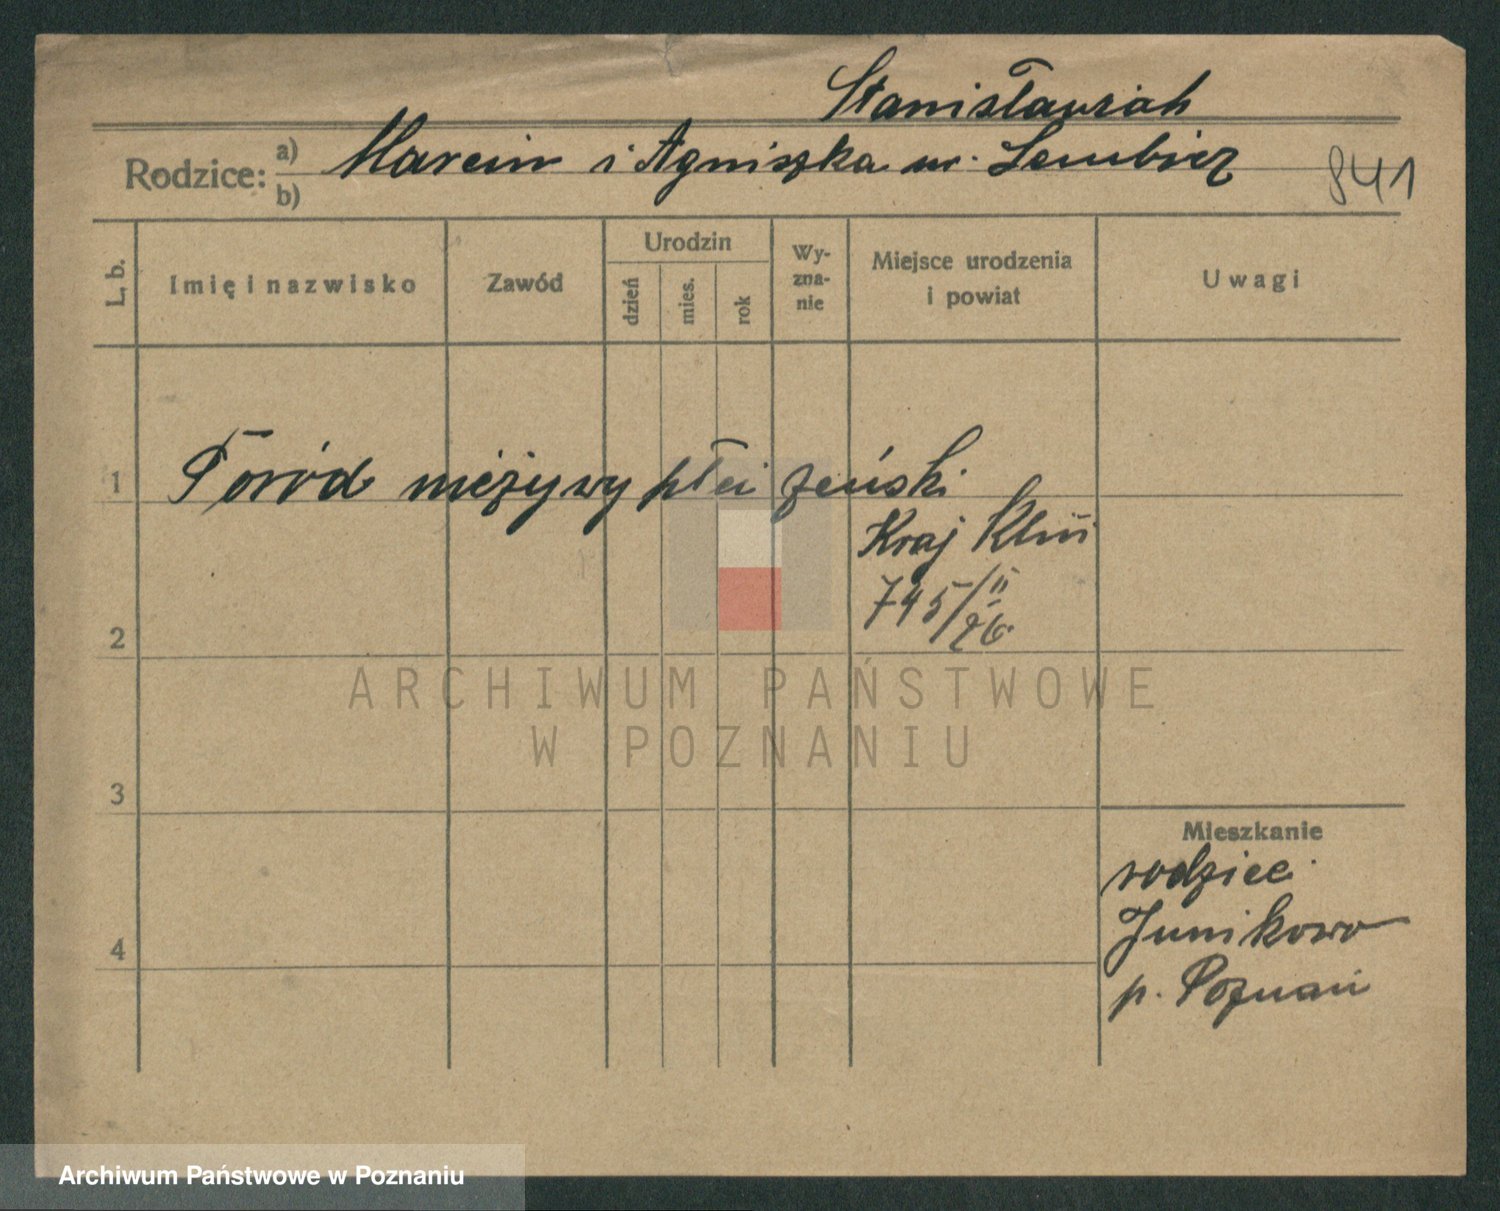 Stanisławiak
Rodzice: a) Marcin i Agniszka ur. Sembicz 841
b)
L. b. Imię i nazwisko Zawód Urodzin dzień mies. rok Wy-zna-nie Miejsce urodzenia i powiat Uwagi
1 Poród nieżywy płci żeński
Kraj Klin
745/II
26.
2
ARCHIWUM PAŃSTWOWE
W POZNANIU
3
Mieszkanie
rodzice
Junikowo
4
p. Poznań
Archiwum Państwowe w Poznaniu